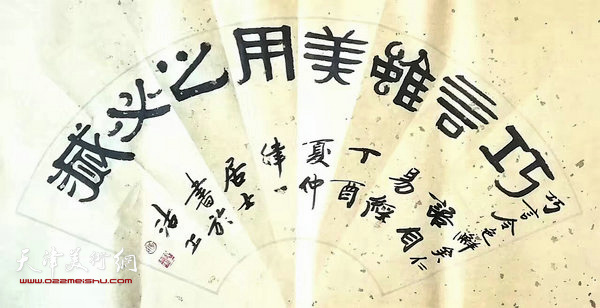 巧言雖美用之必滅
巧言令色
鮮矣仁
語自
易經
丁酉
夏仲
律一
居士
書於
沽上
天津美術網
www.022meishu.com